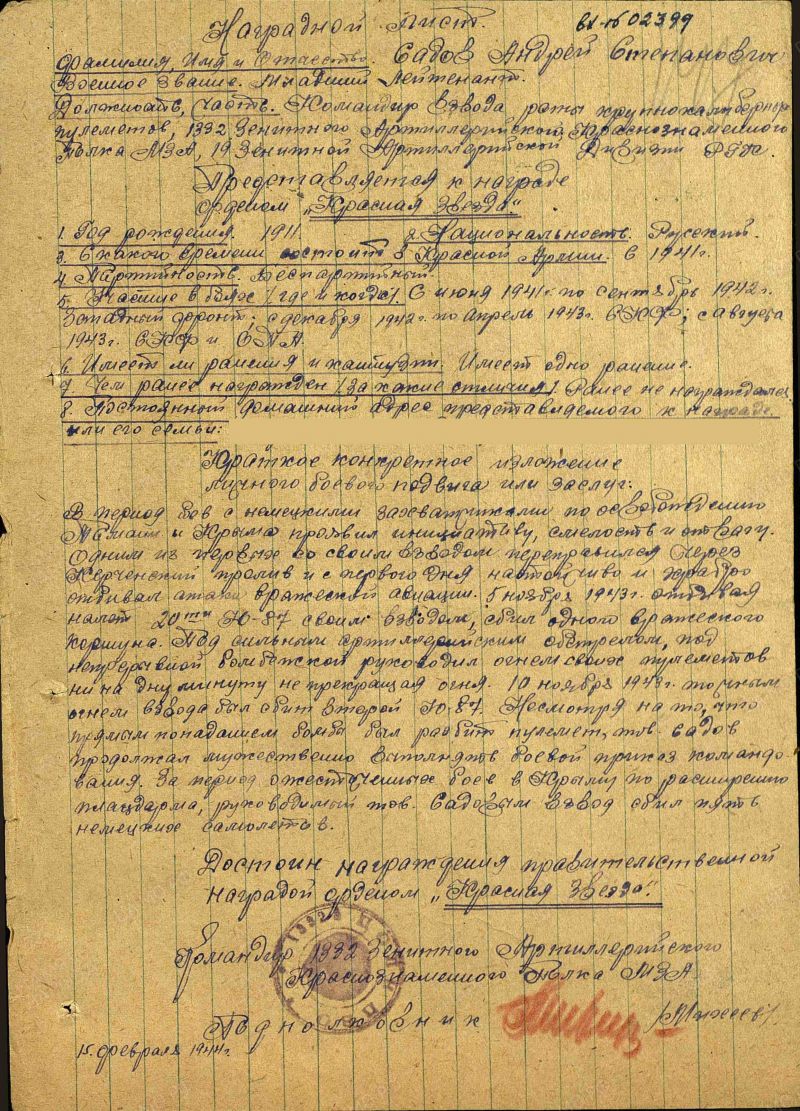 Наградной Лист. вх-1602399
Фамилия, Имя и Отчество. Садов Андрей Степанович
Военное Звание. Младший Лейтенант.
Должность, Часть. Командир взвода роты крупнокалиберных
пулеметов, 1332 Зенитного Артиллерийского Краснознаменного
Полка МЗА, 19 Зенитной Артиллерийской Дивизии РГК.
Представляется к награде
орденом „Красная Звезда".
1. Год рождения. 1911. 2. Национальность. Русский.
3. С какого времени состоит в Красной Армии. С 1941г.
4. Партийность. Беспартийный
5. Участие в боях /где и когда/. С июня 1941г по сентябрь 1942г.
Западный фронт; с декабря 1942г. по Апрель 1943г. СКФ; с августа
1943г. СКФ и ОПА.
6. Имеет ли ранения и контузии. Имеет одно ранение.
7. Чем ранее награжден /за какие отличия/. Ранее не награждался
8. Постоянный домашний адрес представляемого к награде
или его семьи:
Краткое конкретное изложение
личного боевого подвига или заслуг:
В период боев с немецкими захватчиками по освобождению
Тамани и Крыма проявил инициативу, смелость и отвагу.
Одним из первых со своим взводом переправился через
Керченский пролив и с первого дня настойчиво и храбро
отбивал атаки вражеской авиации. 5 ноября 1943г. отбивая
налет 20ти Ю-87 своим взводом, сбил одного вражеского
коршуна. Под сильным артиллерийским обстрелом, под
непрерывной бомбежкой руководил огнем своих пулеметов
ни на одну минуту не прекращая огня. 10 ноября 1943г. точным
огнем взвода был сбит второй Ю-87. Несмотря на то, что
прямым попаданием бомбы был разбит пулемет, тов. Садов
продолжал мужественно выполнять боевой приказ командо-
вания. За период ожесточенных боев в Крыму по расширению
плацдарма, руководимый тов. Садовым взвод сбил пять
немецких самолетов.
Достоин награждения правительственной
наградой орденом „Красная Звезда".
Командир 1332 Зенитного Артиллерийского
Краснознаменного Полка МЗА
Подполковник /Михеев/
15 февраля 1944г.